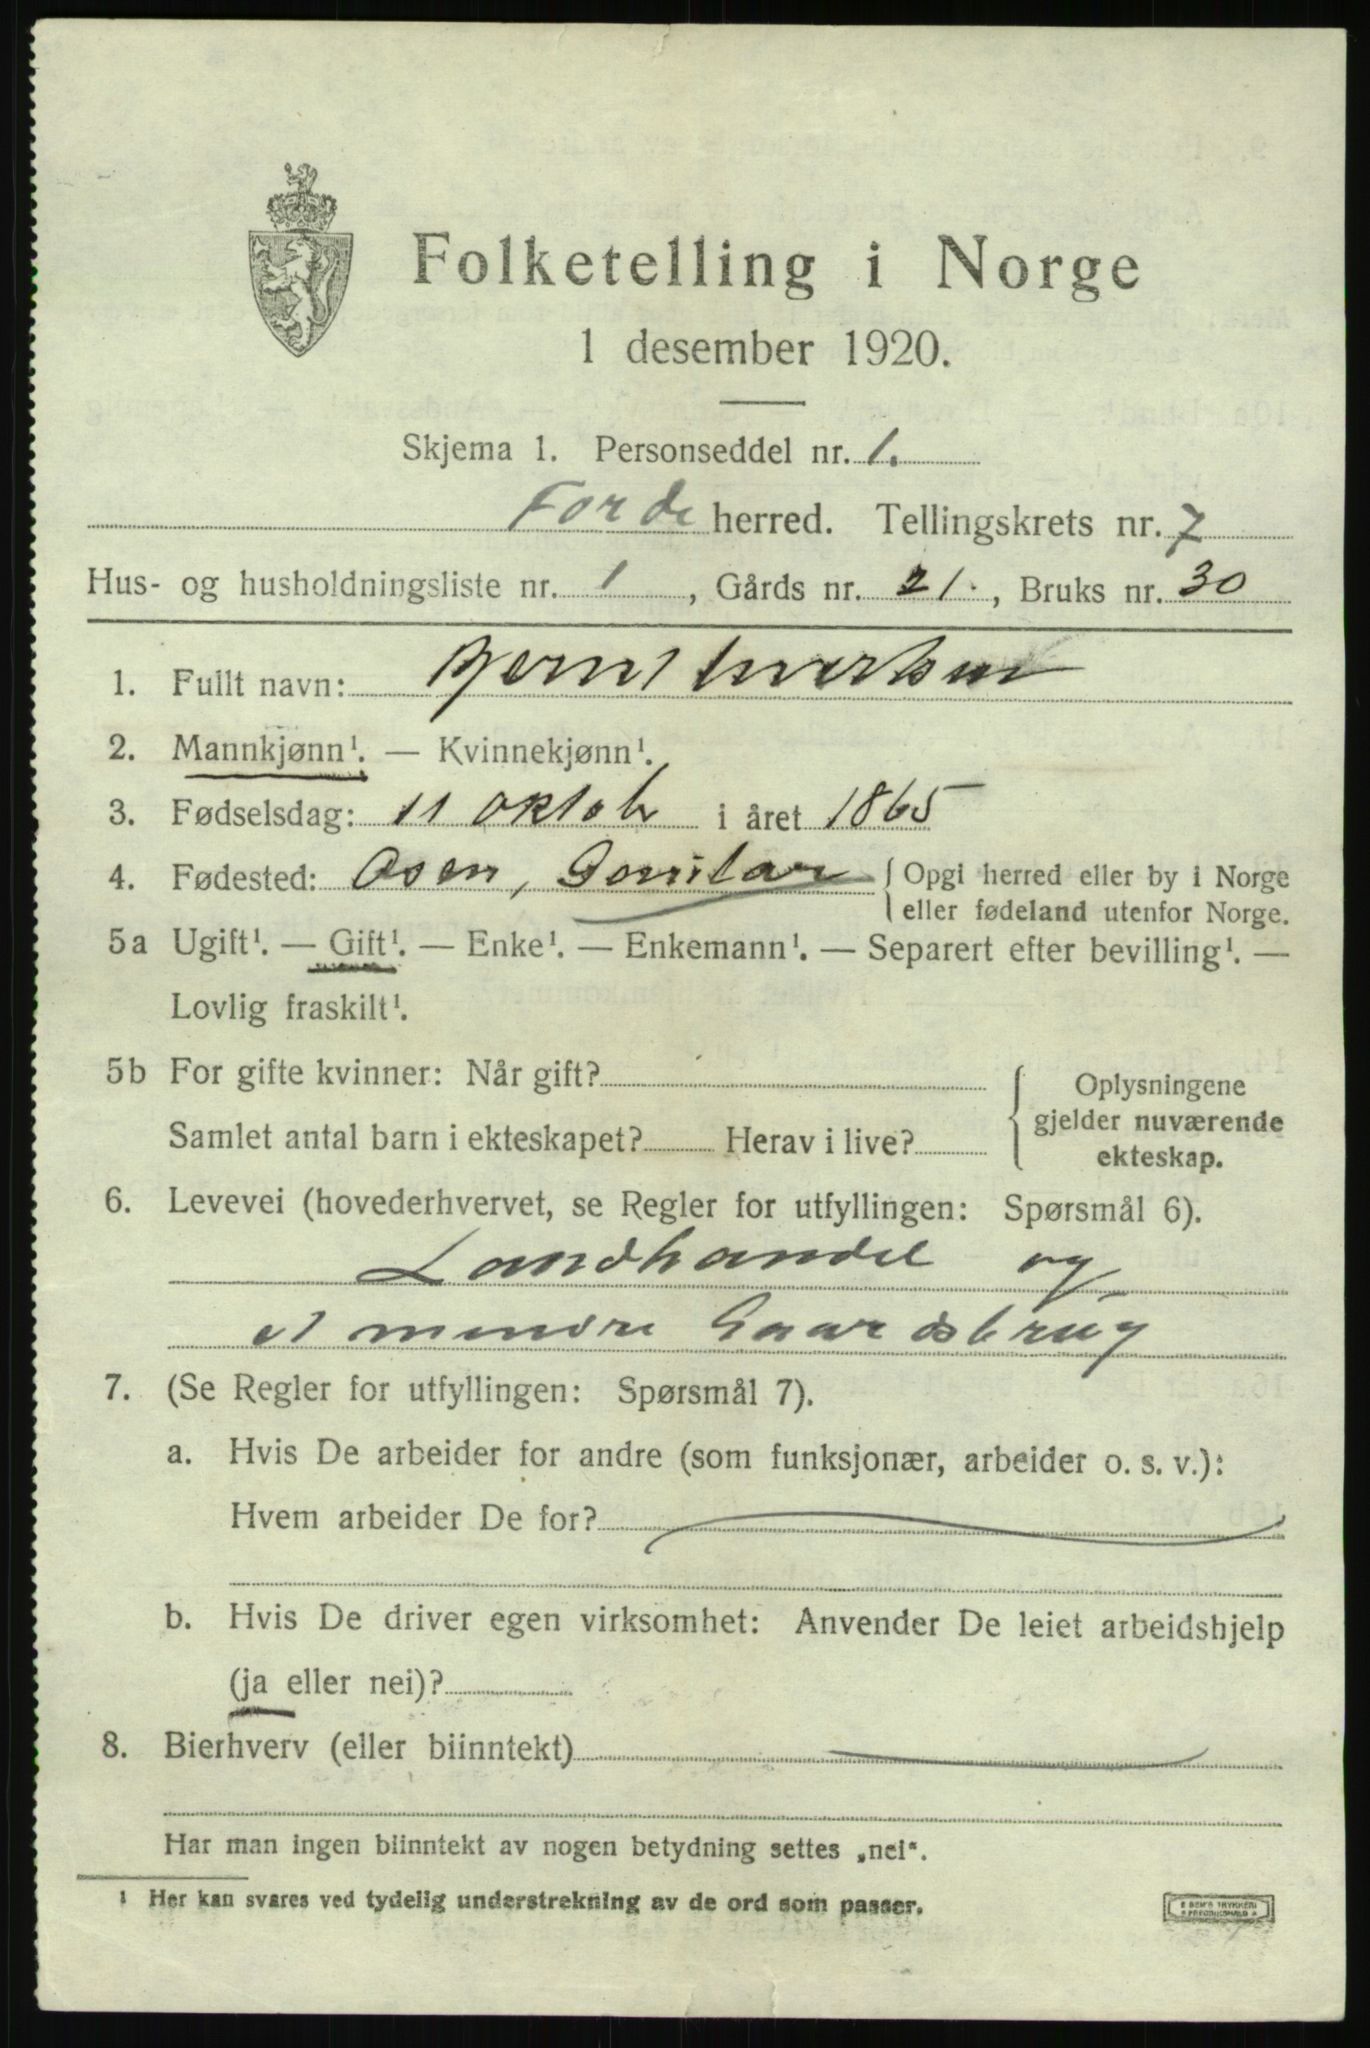 Folketelling i Norge
1 desember 1920.
Skjema 1. Personseddel nr. 1.
Førde herred. Tellingskrets nr. 7
Hus- og husholdningsliste nr. 1, Gårds nr. 21., Bruks nr. 30
1. Fullt navn:
2. Mannkjønn¹. — Kvinnekjønn¹.
3. Fødselsdag: 11 oktob i året 1865
4. Fødested: Osen, Gaular { Opgi herred eller by i Norge
eller fødeland utenfor Norge.
5a Ugift¹. — Gift¹. — Enke¹. — Enkemann¹. — Separert efter bevilling¹. —
Lovlig fraskilt¹.
5b For gifte kvinner: Når gift?
Samlet antal barn i ekteskapet? Herav i live?
Oplysningene
gjelder nuværende
ekteskap.
6. Levevei (hovederhvervet, se Regler for utfyllingen: Spørsmål 6).
Landhandel og
et mindre Gaardsbrug
7. (Se Regler for utfyllingen: Spørsmål 7).
a. Hvis De arbeider for andre (som funksjonær, arbeider o. s. v.):
Hvem arbeider De for?
b. Hvis De driver egen virksomhet: Anvender De leiet arbeidshjelp
(ja eller nei)?
8. Bierhverv (eller biinntekt)
Har man ingen biinntekt av nogen betydning settes „nei“.
¹ Her kan svares ved tydelig understrekning av de ord som passer.